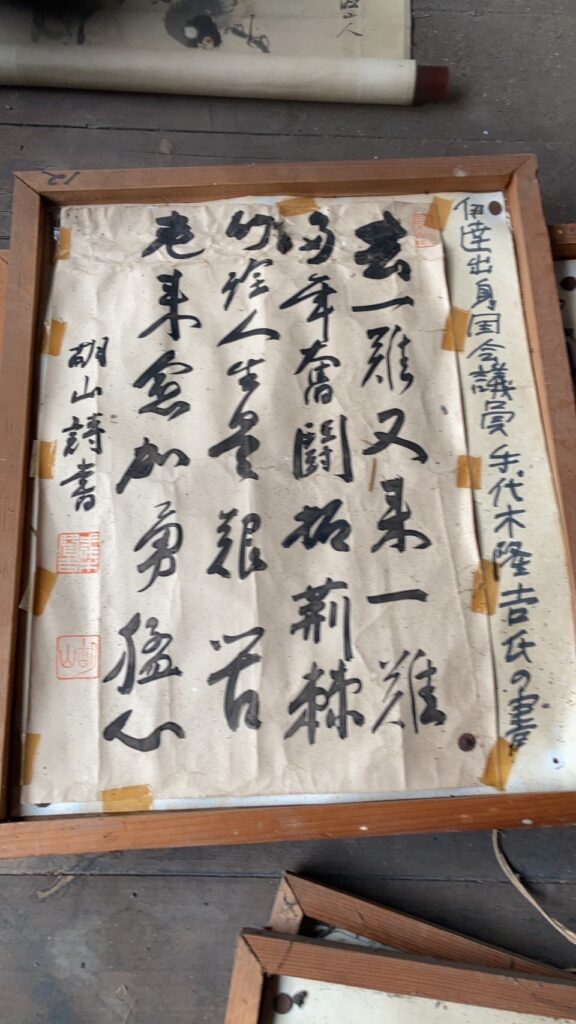 伊達出身国会議員手代木隆吉氏の書
去一難又来一難
多年奮闘拓荊棘
人生是艱苦
老来愈加勇猛心
胡山詩書
山人
12